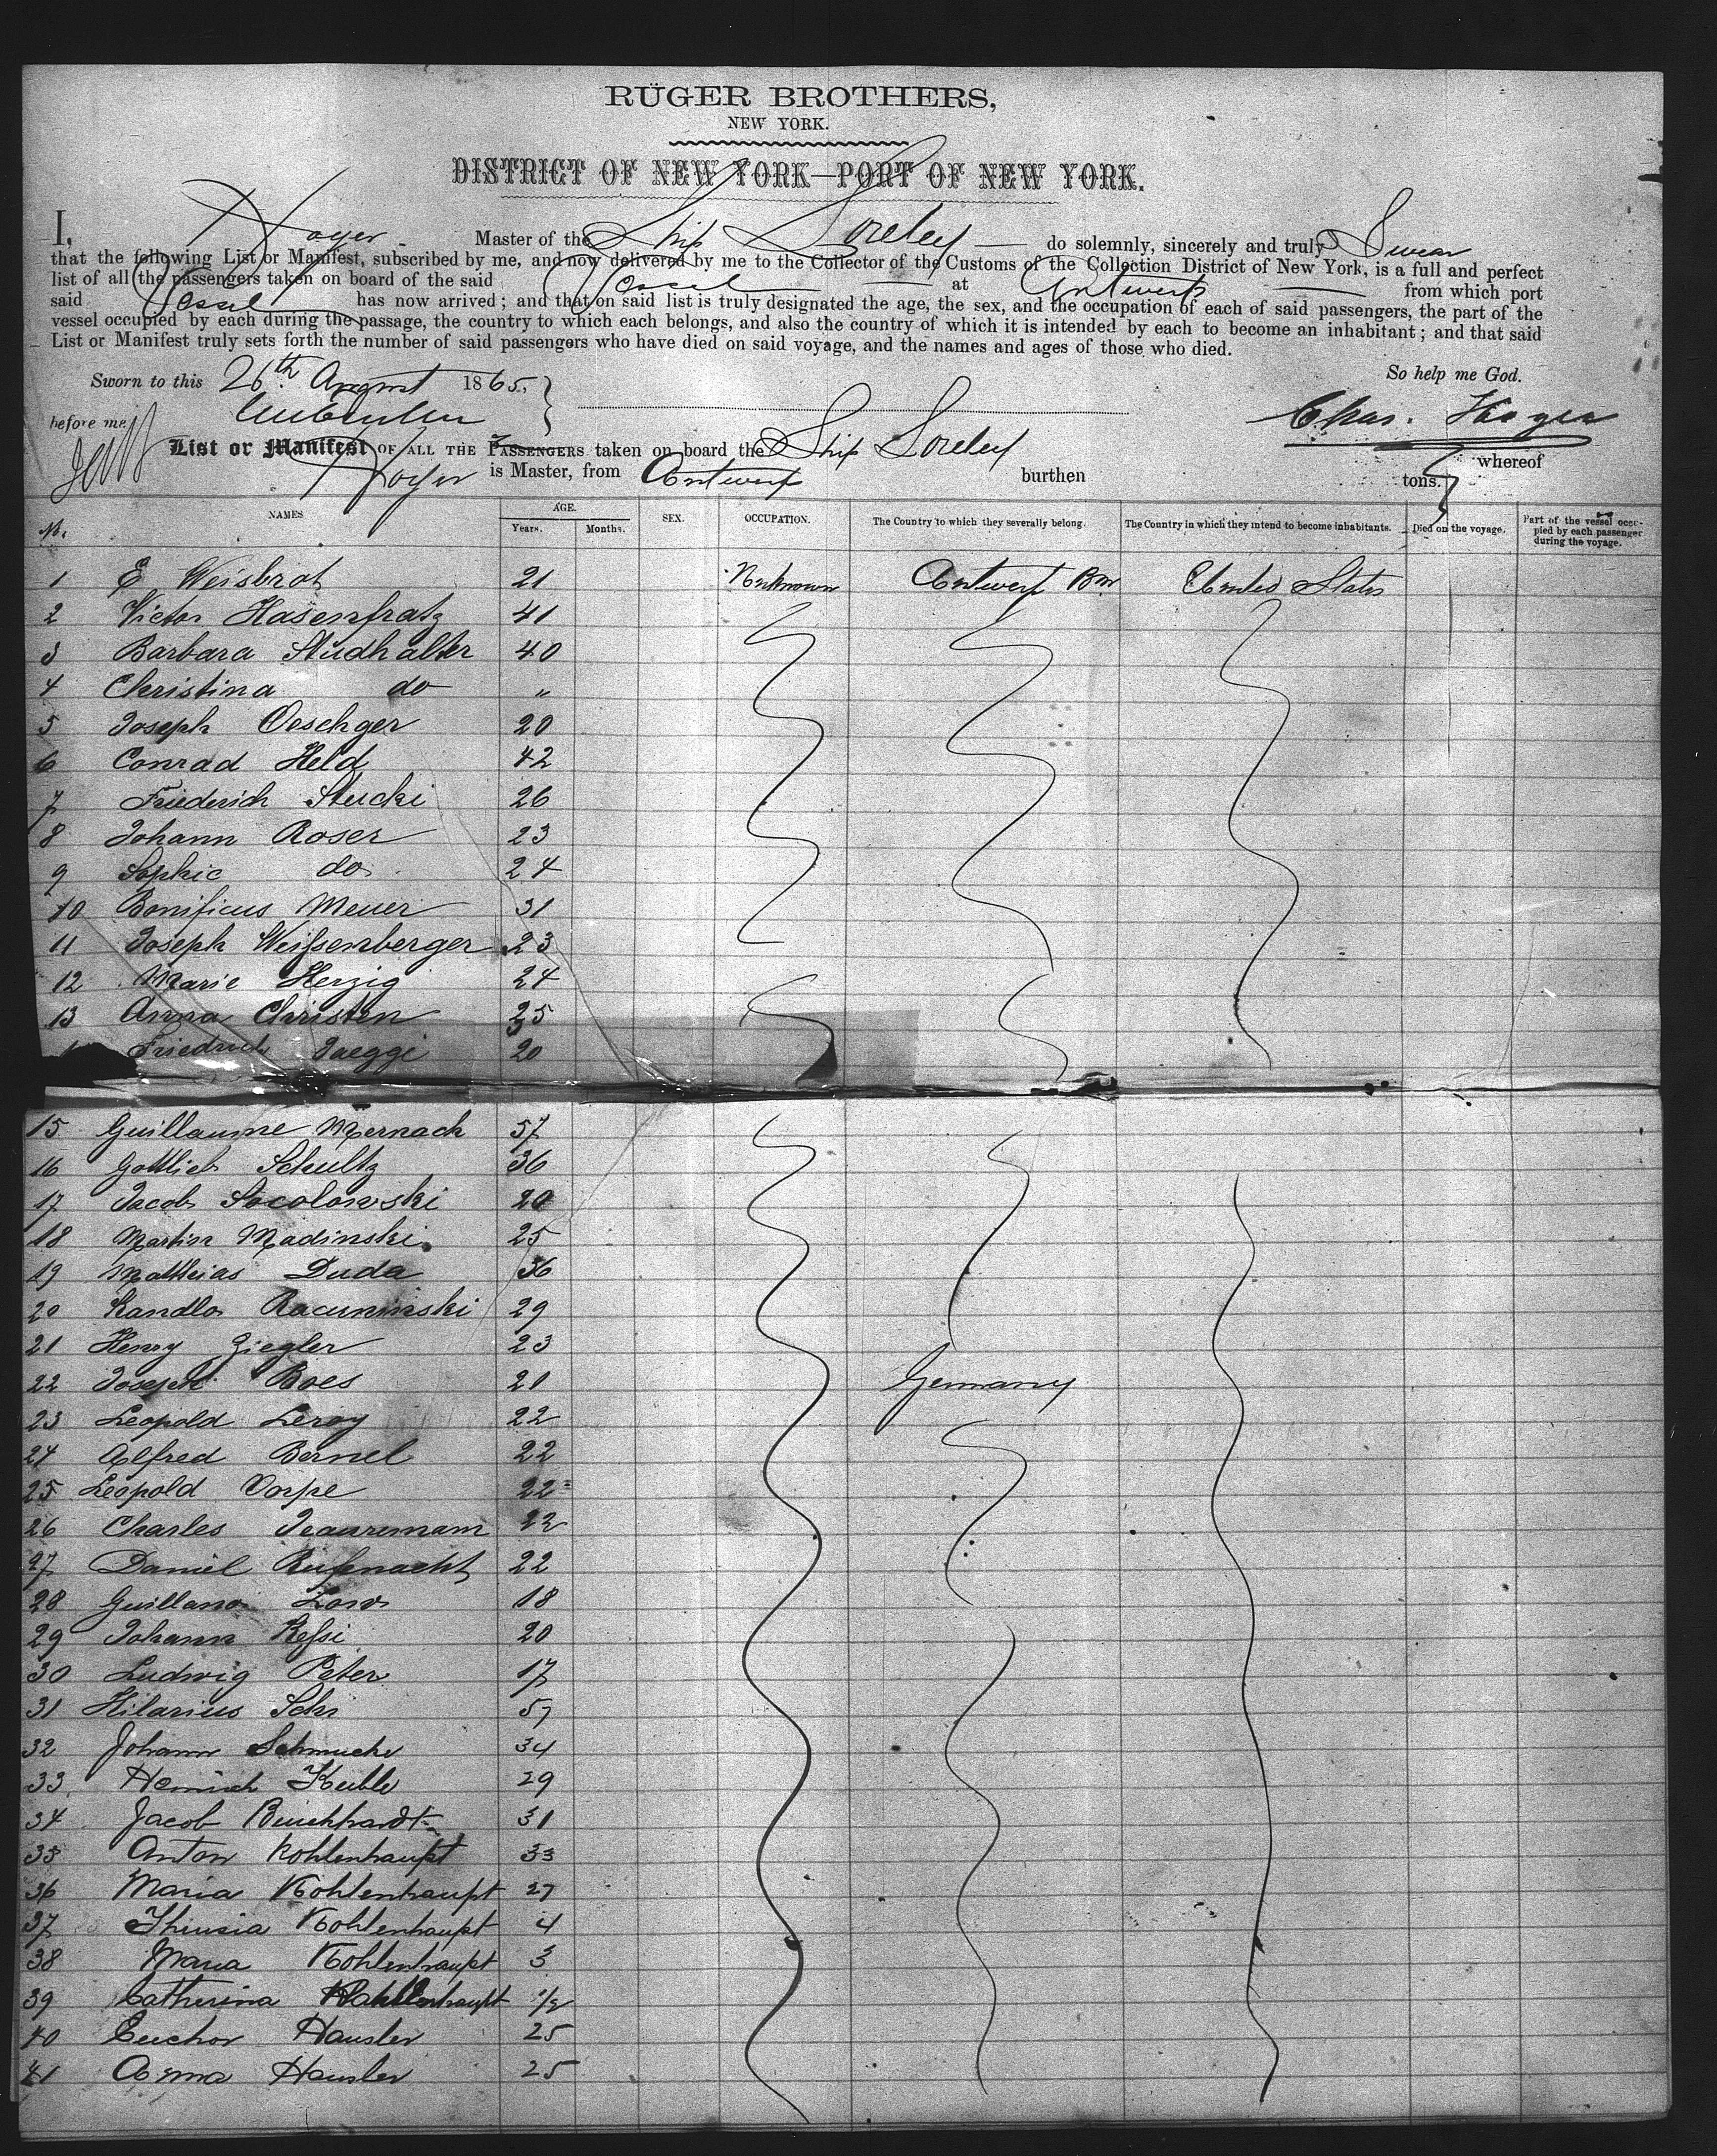 RÜGER BROTHERS,
NEW YORK.
DISTRICT OF NEW YORK—PORT OF NEW YORK.
I, Hoyer Master of the Ship Loreley do solemnly, sincerely and truly Swear
that the following List or Manifest, subscribed by me, and now delivered by me to the Collector of the Customs of the Collection District of New York, is a full and perfect
list of all the passengers taken on board of the said Vessel at Antwerp from which port
said Vessel has now arrived; and that on said list is truly designated the age, the sex, and the occupation of each of said passengers, the part of the
vessel occupied by each during the passage, the country to which each belongs, and also the country of which it is intended by each to become an inhabitant; and that said
List or Manifest truly sets forth the number of said passengers who have died on said voyage, and the names and ages of those who died.
Sworn to this 26th August 1865. So help me God.
before me Chas. Hoyer
List or Manifest OF ALL THE PASSENGERS taken on board the Ship Loreley whereof
Hoyer is Master, from Antwerp burthen tons.
No. NAMES AGE. Years. Months. SEX. OCCUPATION. The Country to which they severally belong. The Country in which they intend to become inhabitants. Died on the voyage. Part of the vessel occupied by each passenger during the voyage.
1 E Weisbrot 21 Unknown Antwerp United States
2 Victor Hasenfratz 41
3 Barbara Studhalter 40
4 Christina do "
5 Joseph Oeschger 20
6 Conrad Held 42
7 Friederich Stucki 26
8 Johann Roser 23
9 Sophie do 24
10 Bonificus Meuer 31
11 Joseph Weißenberger 23
12 Marie Herzig 24
13 Anna Christen 25
Friedrich Jaeggi 20
15 Guillaume Mernach 57
16 Gottlieb Schultz 36
17 Jacob Socolowski 20
18 Martin Madinski 25
19 Matthias Duda 36
20 Kandlo Racuninski 29
21 Henry Ziegler 23
22 Joseph Boes 21 Germany
23 Leopold Leroy 22
24 Alfred Bernel 22
25 Leopold Vorpe 22
26 Charles Jeanremam 22
27 Daniel Rufenacht 22
28 Guillano Low 18
29 Johann Keßi 20
30 Ludwig Peter 17
31 Hilarius Schi 57
32 Johann Schmucki 34
33 Heinrich Keible 29
34 Jacob Burckhardt 31
35 Anton Kohlenhaupt 33
36 Maria Kohlenhaupt 27
37 Thiusia Kohlenhaupt 4
38 Maria Kohlenhaupt 3
39 Catherina Kohlenhaupt 1/2
40 Euchor Hausler 25
41 Anna Hausler 25